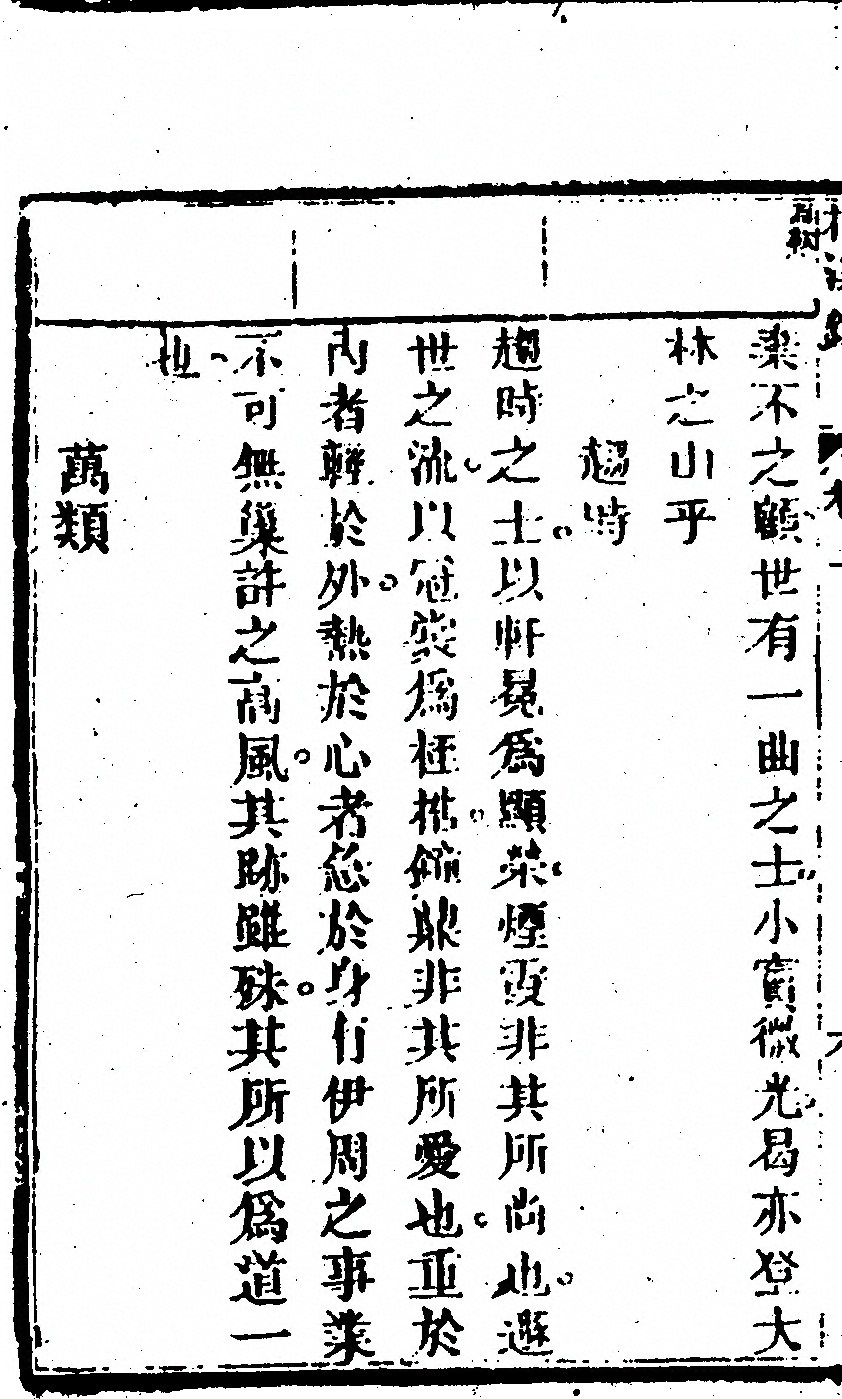 棄不之顧世有一曲之士小實微光曷亦登大
林之山乎
趨時
趨時之士以軒冕爲顯榮煙霞非其所尚也遯
世之流以冠裳爲桎梏鼎非其所愛也重於
內者輕於外熱於心者忘於身有伊周之事業
不可無巢許之高風其跡雖殊其所以爲道一
也
萬類